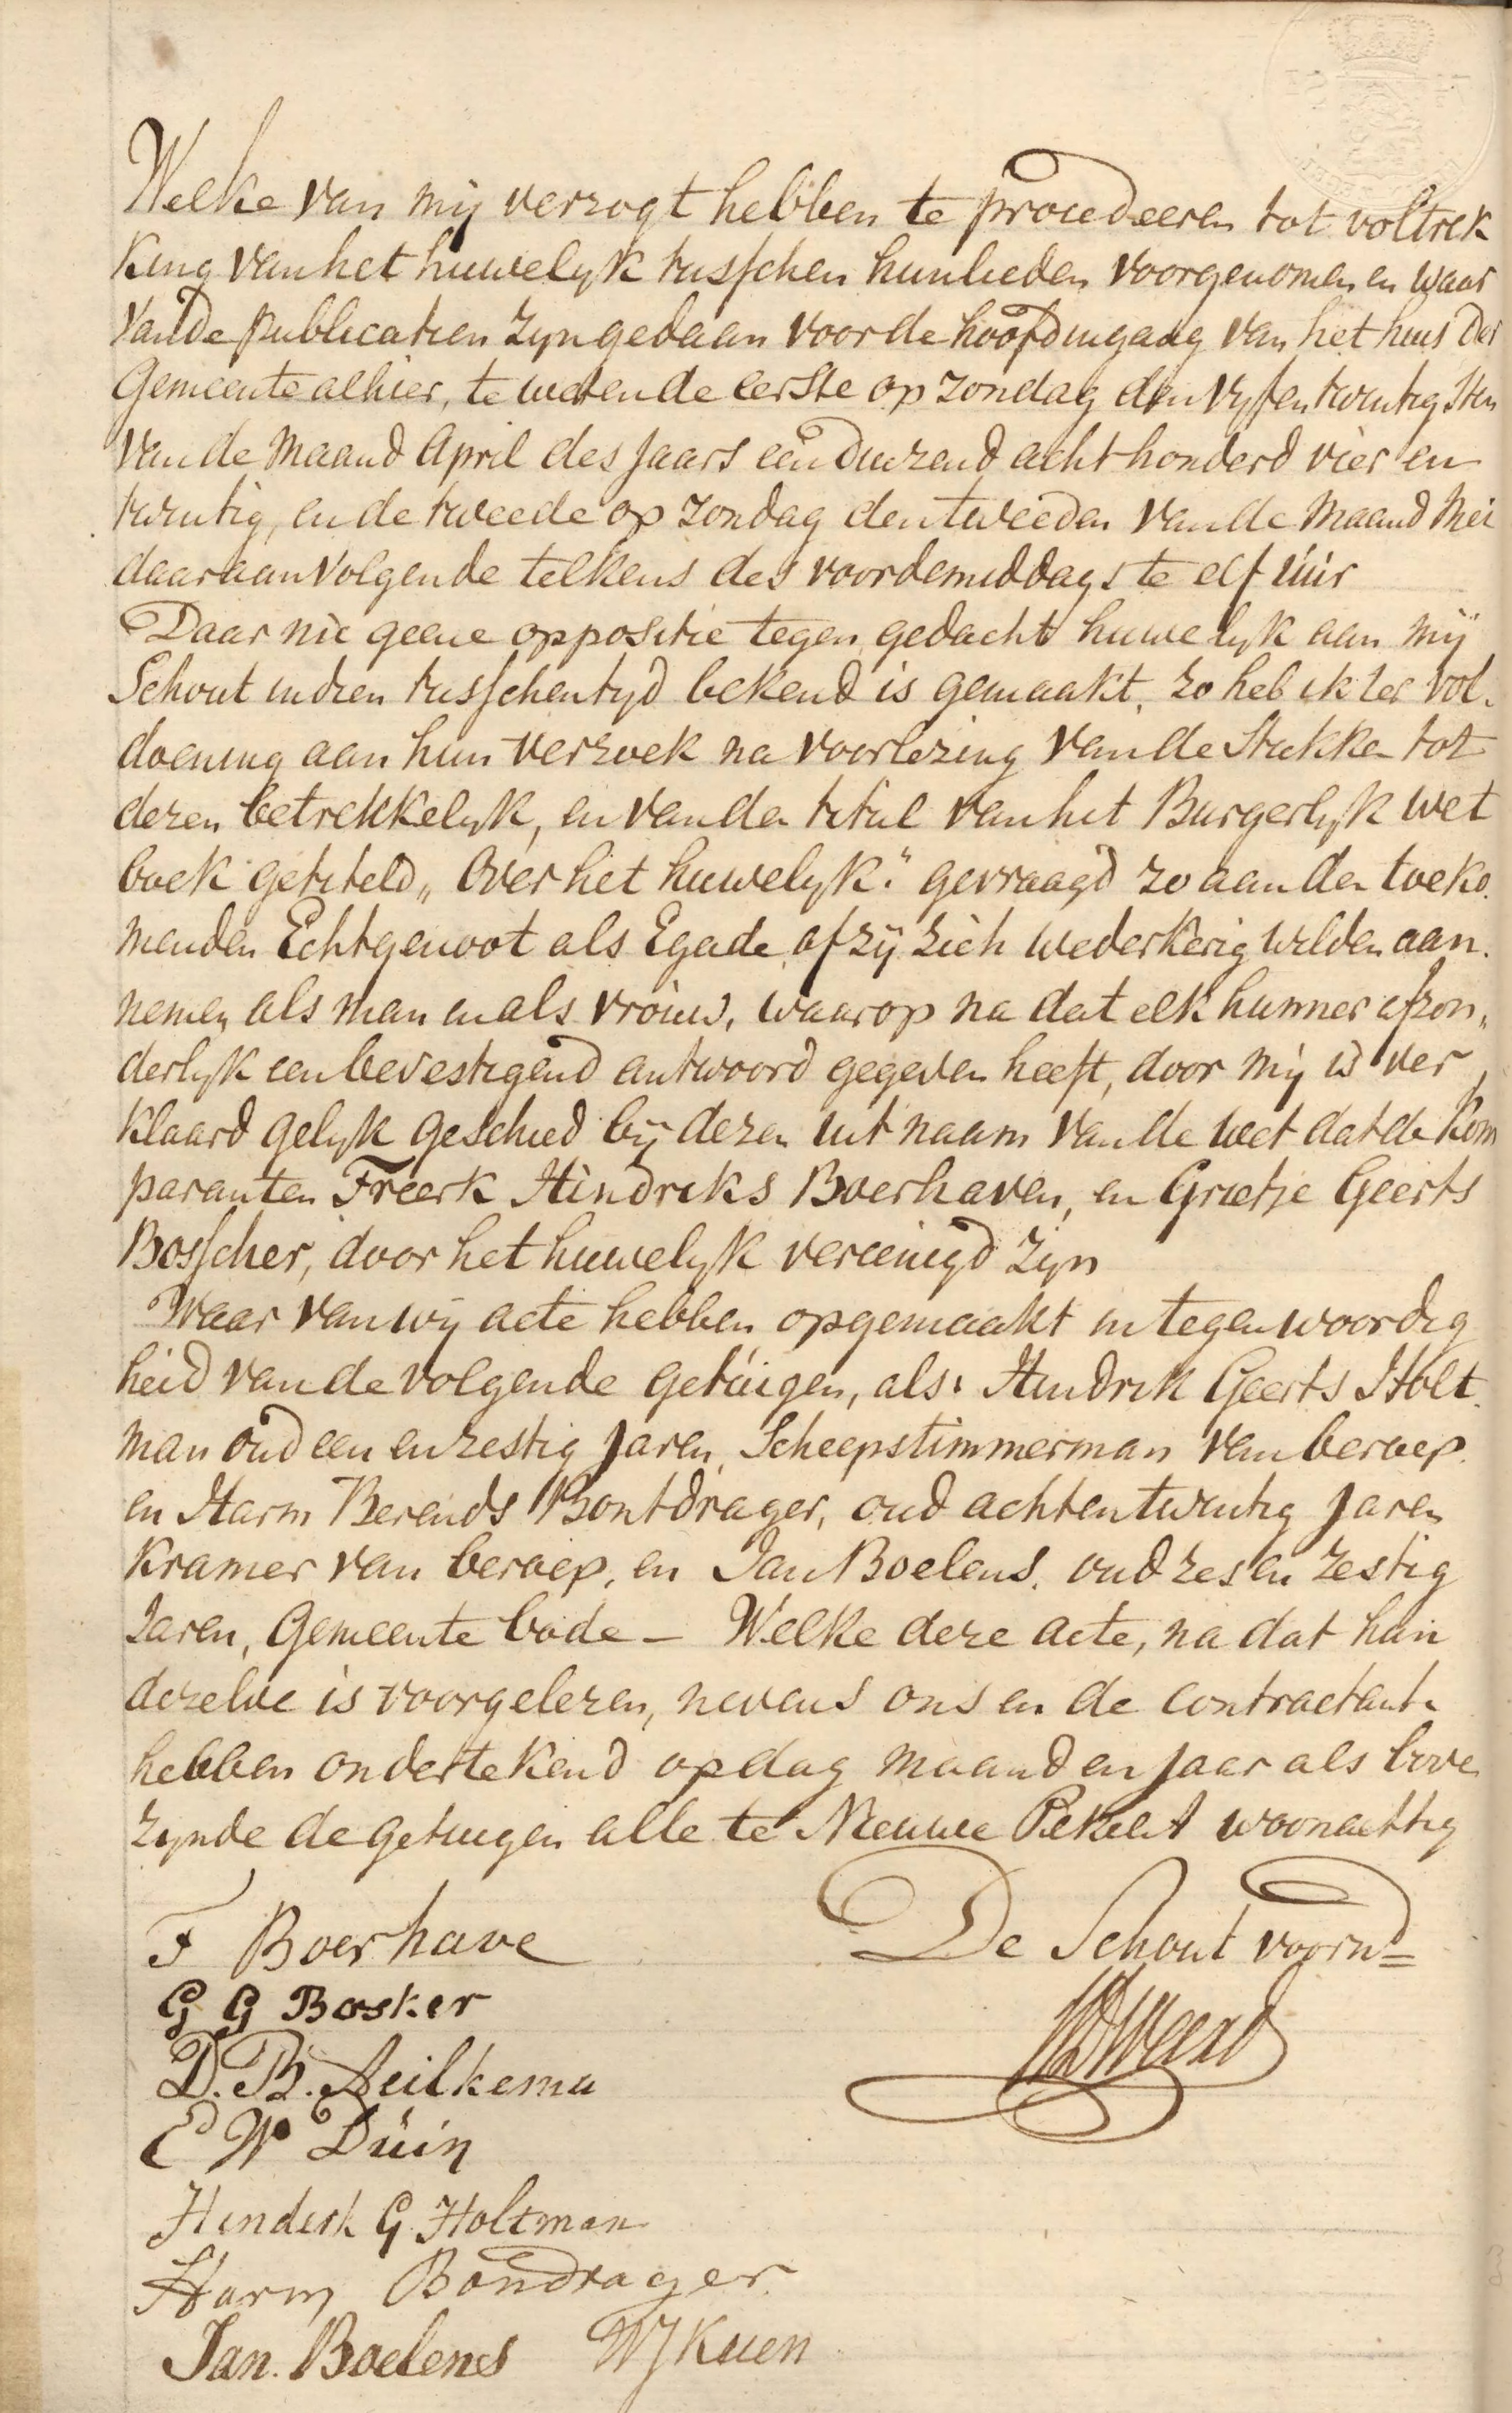 Welke van mij verzogt hebben te procedeeren tot voltrek
king van het huwelyk tusschen hunlieden voorgenomen en waar
van de publicatien zyn gedaan voor de hoofdingang van het huis der
Gemeente alhier, te weten de eerste op zondag den vyfentwintigsten
van de maand April des Jaars een duizend acht honderd vier en
twintig, en de tweede op zondag den tweeden van de maand Mei
daaraanvolgende telkens des voordemiddags te elf uur
Daar nu geene oppositie tegen gedacht huwelyk aan mij
Schout in dien tusschentyd bekend is gemaakt, zo heb ik ter vol.
doening aan hun verzoek na voorlezing van de Stukken tot
dezen betrekkelyk, en van den titul van het Burgerlyk wet
boek getiteld „ Over het huwelyk." gevraagd zo aan den toeko.
menden Echtgenoot als Egade, of zij zich wederkerig wilden aan.
nemen als man en als vrouw, waarop na dat elk hunner afzon„
derlyk een bevestigend antwoord gegeven heeft, door mij is ver
klaard gelyk geschied bij dezen uit naam van de wet dat de kom
paranten Freerk Hindriks Boerhaven, en Grietje Geerts
Bosscher, door het huwelyk vereenigd zyn
Waar van wij acte hebben opgemaakt in tegenwoordig
heid van de volgende getuigen, als: Hindrik Geerts Holt.
man oud een en zestig Jaren, Scheepstimmerman van beroep.
en Harm Berends Bontdrager, oud achtentwintig Jaren
Kramer van beroep, en Jan Boelens, oud zes en zestig
Jaren, Gemeente bode – Welke deze acte, na dat hun
dezelve is voorgelezen, nevens ons en de contractant.
hebben ondertekend op dag maand en Jaar als boven
zynde de getuigen alle te Nieuwe Pekel A woonachtig
F Boerhave
De Schout voornd
G G Bosker
D. B. Aeilkema
E W Düin
Henderk G. Holtman
Harm Bondrager
Jan. Boelens WJ Kuen